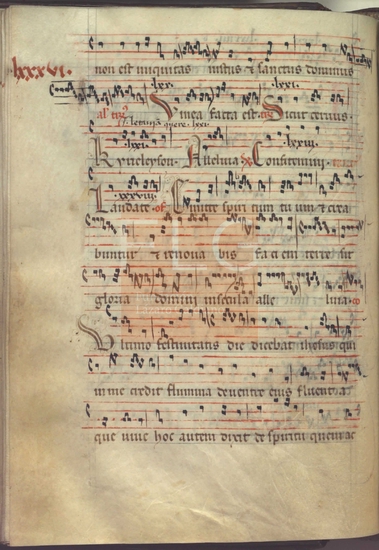 lxxxvi.
non est iniquitas iustus & sanctus dominus
.lxx. .lxxi.
Vinea facta est. Sicut cervus.
.lxxiii.
Kyrieleyson. Alleluia Confitemini
.lxxviii.
Laudate. of Emitte spiritum tuum & crea
buntur & renova bis faciem terre sit
gloria domini insecula alle luia. co
Ultimo festivitatis die dicebat ihesus qui
in me credit flumina de ventre eius fluent a
que vive hoc autem dixit de spiritu quem erac